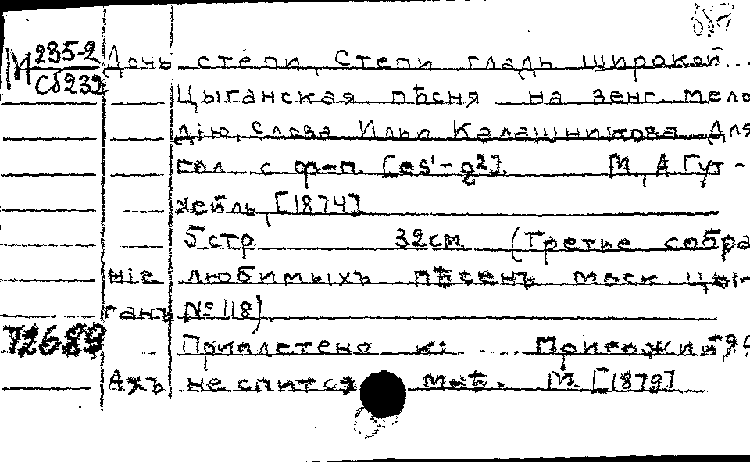 М 235-2 Дочь степи. Степи гладь широкой...
Сб232 Цыганская пѣсня на венг. мело
дію, слова Ильи Калашникова. Для
гол. с ф-п. [es¹-g²]. М., А. Гут-
хейль, [1874]
5 стр. 32 см. (Третье собра
ніе любимыхъ пѣсенъ моск. цы-
ганъ №118)
72689 Приплетено к:
Ахъ не спится мнѣ. М. [1879]